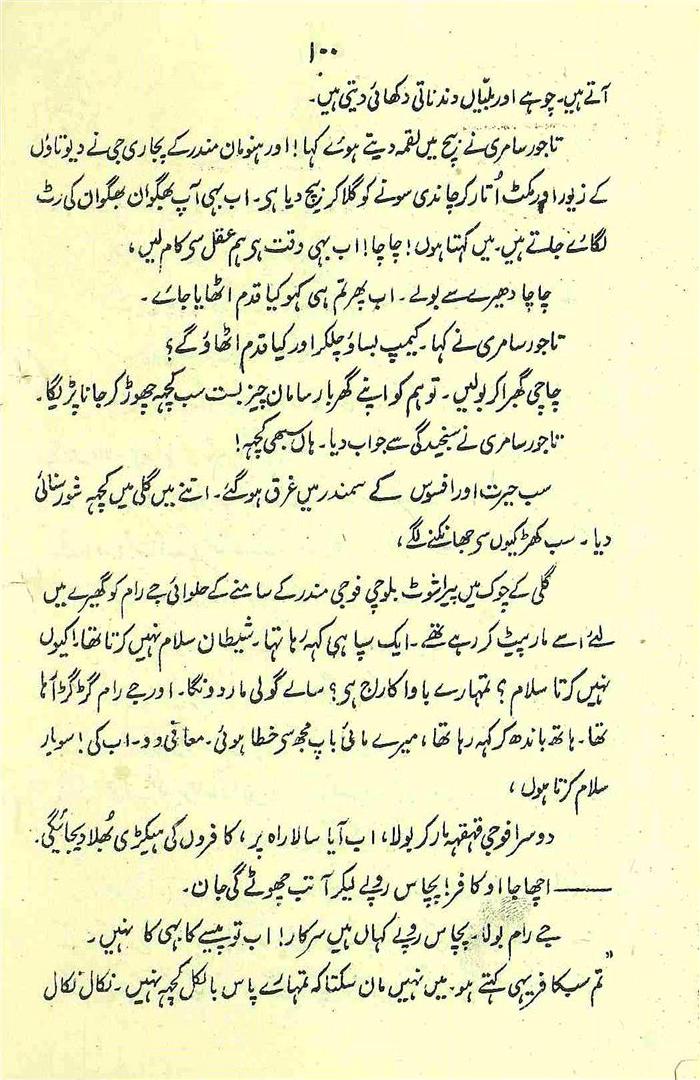 ۱۰۰
آتے ہیں۔ چوہے اور بلیّاں دندناتی دکھائی دیتی ہیں۔
تاجور سامری نے بیچ میں لقمہ دیتے ہوئے کہا! اور ہنومان مندر کے پجاری جی نے دیوتاؤں
کے زیور اور مکٹ اُتار کر چاندی سونے کو گلا کر بیچ دیا ہی۔ اب بھی آپ بھگوان بھگوان کی رٹ
لگائے جلتے ہیں۔ میں کہتا ہوں! چاچا! اب بھی وقت ہی ہم عقل سی کام لیں،
چاچا دھیرے سے بولے۔ اب پھر تم ہی کہو کیا قدم اٹھایا جائے۔
تاجور سامری نے کہا۔ کیمپ بساؤ چلکر اور کیا قدم اٹھاؤ گے؟
چاچی گھبرا کر بولیں۔ تو ہم کو اپنے گھر بار سامان چیز بست سب کچہہ چھوڑ کر جانا پڑ لیگا۔
تاجور سامری نے سنجیدگی سے جواب دیا۔ ہاں سبھی کچہہ!
سب حیرت اور افسوس کے سمندر میں غرق ہو گئے۔ اتنے میں گلی میں کچہہ شور سنائی
دیا۔ سب کھڑکیوں سی جھانکنے لگے،
گلی کے چوک میں پیراشوٹ بلوچی فوجی مندر کے سامنے کے حلوائی جے رام کو گھیرے میں
لئے اسے مار پیٹ کر رہے تھے۔ ایک سپاہی کہہ رہا تہا۔ شیطان سلام نہیں کرتا تھا! کیوں
نہیں کرتا سلام؟ تمہارے باوا کا راج ہی؟ سالے گولی مار دونگا۔ اور جے رام گڑ گڑا رہا
تھا۔ ہاتھ باندھ کر کہہ رہا تھا، میرے مائی باپ مجھ سی خطا ہوئی۔ معافی دو۔ اب کی! سو بار
سلام کرتا ہوں،
دوسرا فوجی قہقہہ مار کر بولا، اب آیا سالا راہ پر، کافروں کی ہیکڑی بُھلا دیجائیگی۔
—— اچھا جا او کافر! پچاس روپے لیکر آ تب چھوٹے گی جان۔
جے رام بولا۔ پچاس روپے کہاں ہیں سرکار! اب تو پیسے کا بہی کا نہیں۔
"تم سب کافر یہی کہتے ہو۔ میں نہیں مان سکتا کہ تمہارے پاس بالکل کچہہ نہیں۔ نکال نکال